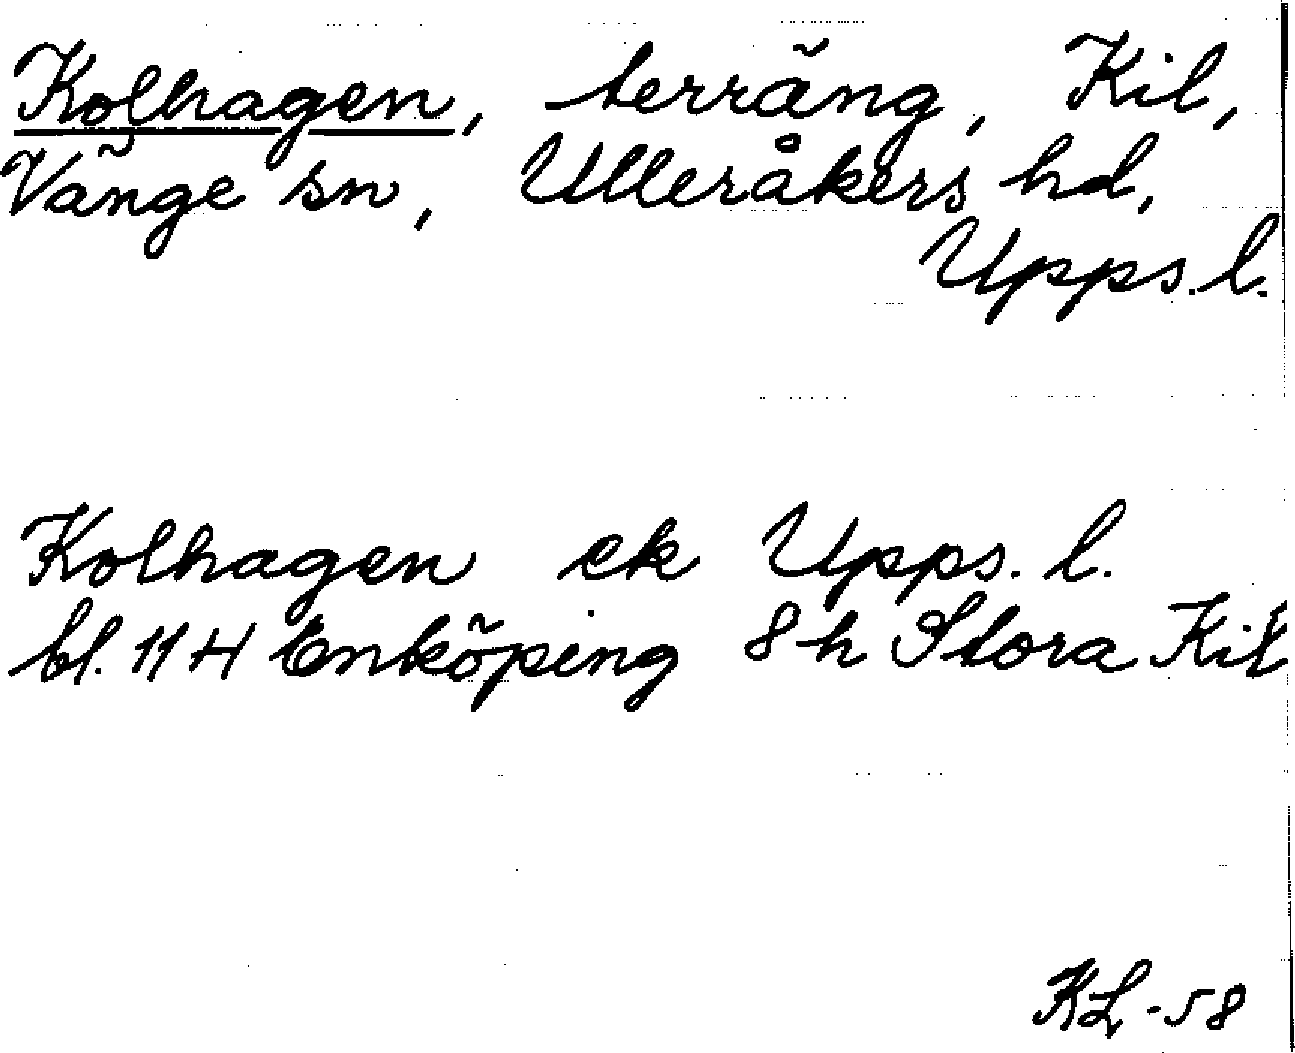 Kolhagen, terräng, Kil,
Vänge sn, Ulleråkers hd,
Upps. l.
Kolhagen ek Upps. l.
bl. 11 H Enköping 8 h Stora Kil
KL -58